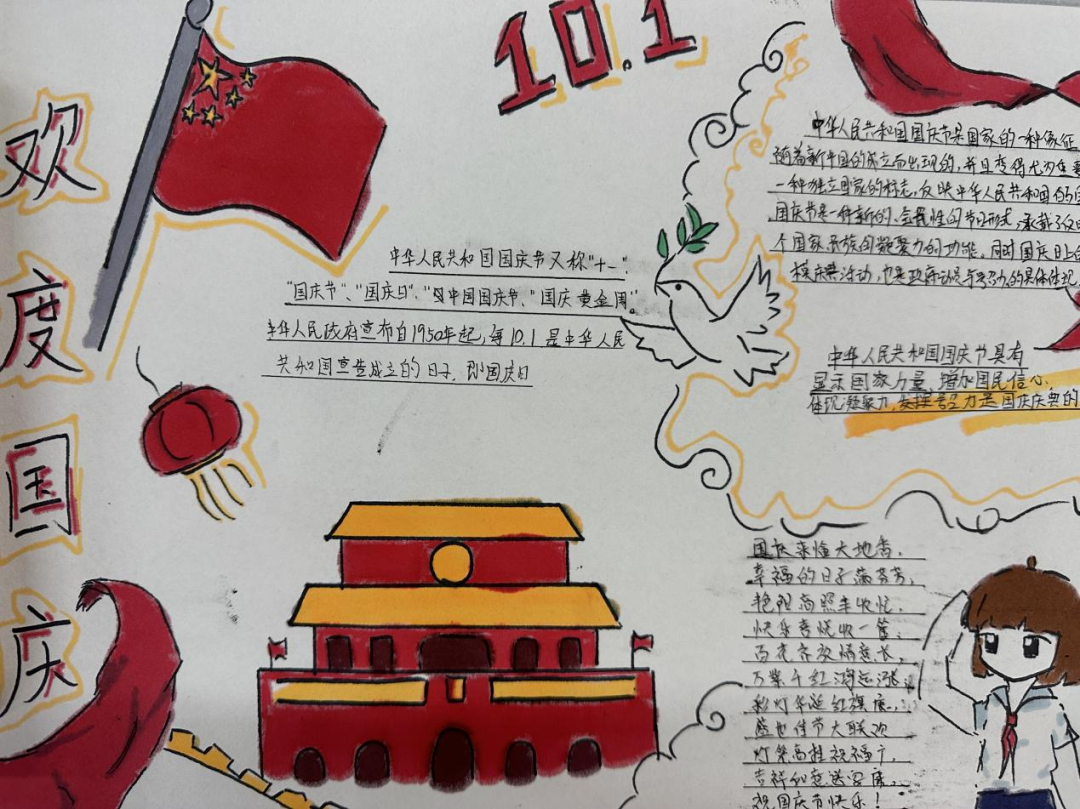 欢度国庆
10.1
中华人民共和国国庆节又称"十一"、
"国庆节"、"国庆日"、"中国国庆节、"国庆黄金周"。
中华人民政府宣布自1950年起,每10.1是中华人民
共和国宣告成立的日子,即国庆日
中华人民共和国国庆节是国家的一种象征
随着新中国的成立而出现的,并且变得尤为重要
一种独立国家的标志,反映中华人民共和国的
国庆节是一种新的、全民性的节日形式,承载了
个国家、民族的凝聚力的功能,同时国庆日上
模庆典活动,也是政府动员与号召力的具体体现
中华人民共和国国庆节具有
显示国家力量、增加国民信心,
体现凝聚力,发挥号召力是国庆庆典的
国庆来临大地香,
幸福的日子满芬芳,
艳阳高照丰收忙,
快乐
百花齐放情意长,
万紫千红鸿运涨,
彩灯华诞红旗展,
盛世佳节大联欢
灯笼高挂祝福
吉祥
祝国庆节快乐!